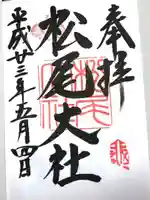 奉拝
松尾大社
平成廿三年五月四日